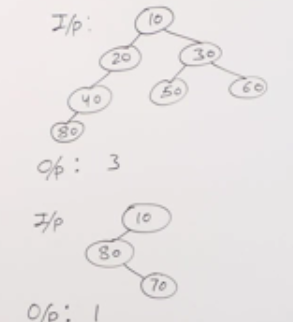 I/p:
10
20 30
40 50 60
80
O/p: 3
I/p
10
80
70
O/p: 1